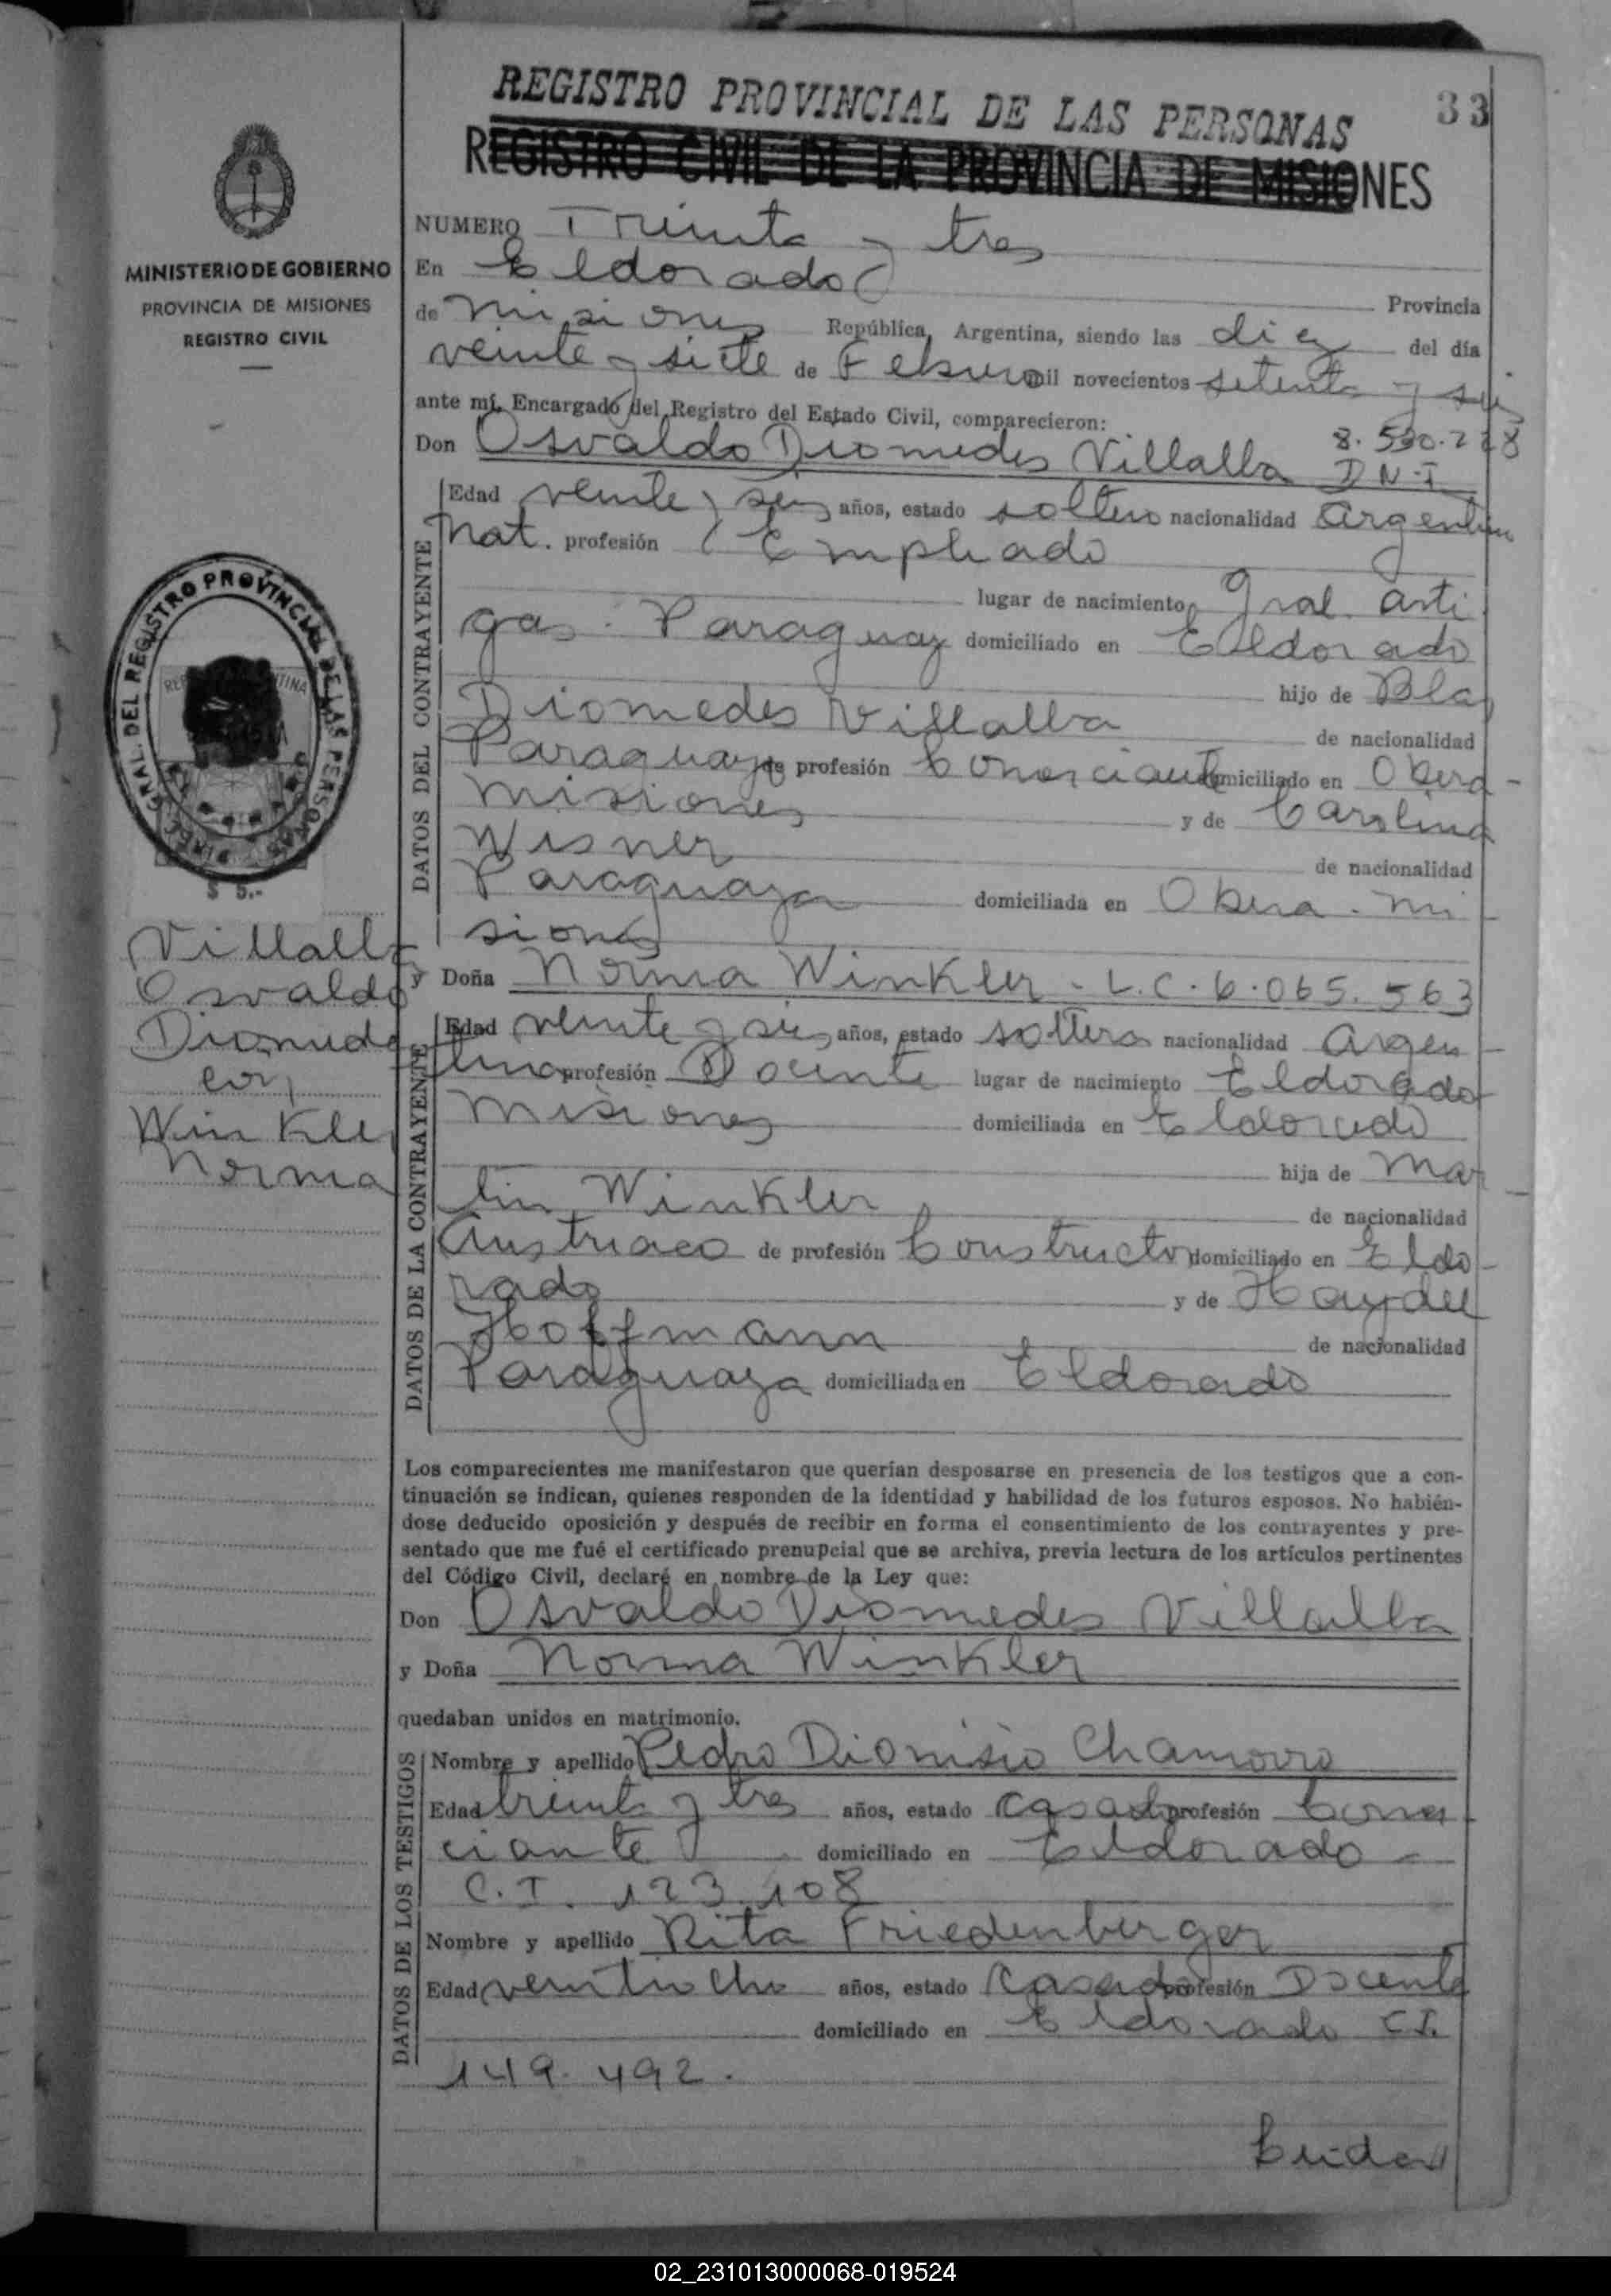 REGISTRO PROVINCIAL DE LAS PERSONAS
33
REGISTRO CIVIL DE LA PROVINCIA DE MISIONES
MINISTERIO DE GOBIERNO
PROVINCIA DE MISIONES
REGISTRO CIVIL
NUMERO Treinta y tres
En Eldorado Provincia
de Misiones República Argentina, siendo las diez del día
veinte y siete de Febrero mil novecientos setenta y seis
ante mí, Encargado del Registro del Estado Civil, comparecieron:
Don Osvaldo Diomedes Villalba D.N.I
Edad veinte y seis años, estado soltero nacionalidad Argentino
Nat. profesión Empleado
lugar de nacimiento Gral. Arti
gas. Paraguay domiciliado en Eldorado
hijo de Blas
Diomedes Villalba de nacionalidad
Paraguayo de profesión Comerciante domiciliado en Obera -
Misiones y de Carolina
Wisner de nacionalidad
Paraguaya domiciliada en Obera. Mi
siones
DATOS DEL CONTRAYENTE
DIREC. GRAL. DEL REGISTRO PROVINCIAL DE LAS PERSONAS
$ 5.-
Villalba
Osvaldo
Diomedes
con
Winkler
Norma
y Doña Norma Winkler - L.C. 6.065.563
Edad veinte y seis años, estado soltera nacionalidad Argen
tina profesión Docente lugar de nacimiento Eldorado
Misiones domiciliada en Eldorado
hija de Mar
tin Winkler de nacionalidad
Austriaco de profesión Constructor domiciliado en Eldo
rado y de Haydee
Hoffmann de nacionalidad
Paraguaya domiciliada en Eldorado
DATOS DE LA CONTRAYENTE
Los comparecientes me manifestaron que querían desposarse en presencia de los testigos que a con-
tinuación se indican, quienes responden de la identidad y habilidad de los futuros esposos. No habién-
dose deducido oposición y después de recibir en forma el consentimiento de los contrayentes y pre-
sentado que me fué el certificado prenupcial que se archiva, previa lectura de los artículos pertinentes
del Código Civil, declaré en nombre de la Ley que:
Don Osvaldo Diomedes Villalba
y Doña Norma Winkler
quedaban unidos en matrimonio.
Nombre y apellido Pedro Dionisio Chamorro
Edad treinta y tres años, estado casado profesión Comer
ciante domiciliado en Eldorado -
C.I. 123.108
Nombre y apellido Rita Friedenberger
Edad veintiocho años, estado Casada profesión Docente
domiciliado en Eldorado C.I.
149.492.
DATOS DE LOS TESTIGOS
02_231013000068-019524